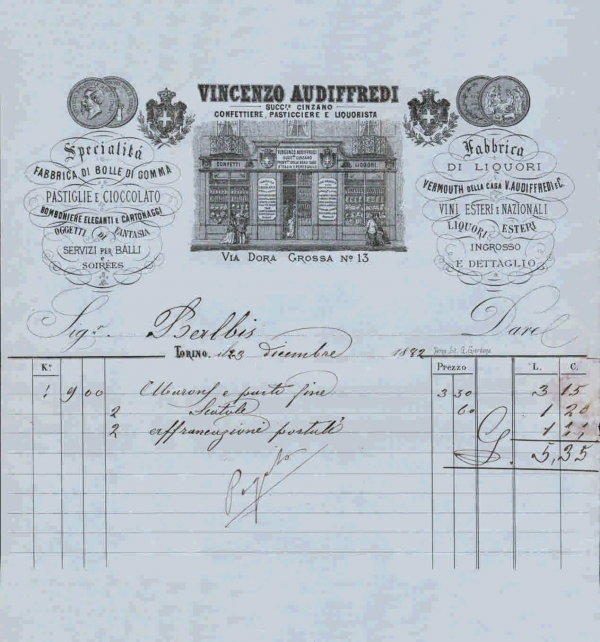 VINCENZO AUDIFFREDI
SUCC.re CINZANO
CONFETTIERE, PASTICCIERE E LIQUORISTA
VINCENZO AUDIFFREDI
SUCC.re CINZANO
CONFETTI
LIQUORI
VIA DORA GROSSA Nº 13
Specialità
FABBRICA DI BOLLE DI GOMMA
PASTIGLIE E CIOCCOLATO
BOMBONIERE ELEGANTI E CARTONAGGI
OGGETTI DI FANTASIA
SERVIZI PER BALLI
E
SOIRÉES
Fabbrica
DI LIQUORI
VERMOUTH DELLA CASA V. AUDIFFREDI e C.
VINI ESTERI E NAZIONALI
LIQUORI ESTERI
INGROSSO
E DETTAGLIO
Sig.r Balbis Dare
TORINO, li 23 dicembre 1882
K.i Prezzo L. C.
9 00 e paste fine 3 50 3 15
2 Scatole 60 1 20
2 affrancazioni postali 1
5,35
Pagato